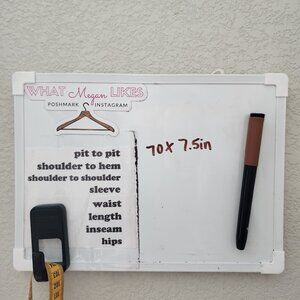 WHAT Megan LIKES
POSHMARK INSTAGRAM
pit to pit
shoulder to hem
shoulder to shoulder
sleeve
waist
length
inseam
hips
70 x 7.5in